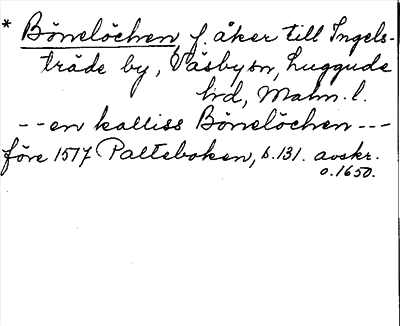 * Bönelöchen, f. åker till Ingels-
träde by, Väsby sn, Luggude
hd, Malm. l.
-- en kalliss Bönelöchen ---
före 1517 Palteboken, s. 131. avskr.
o. 1650.